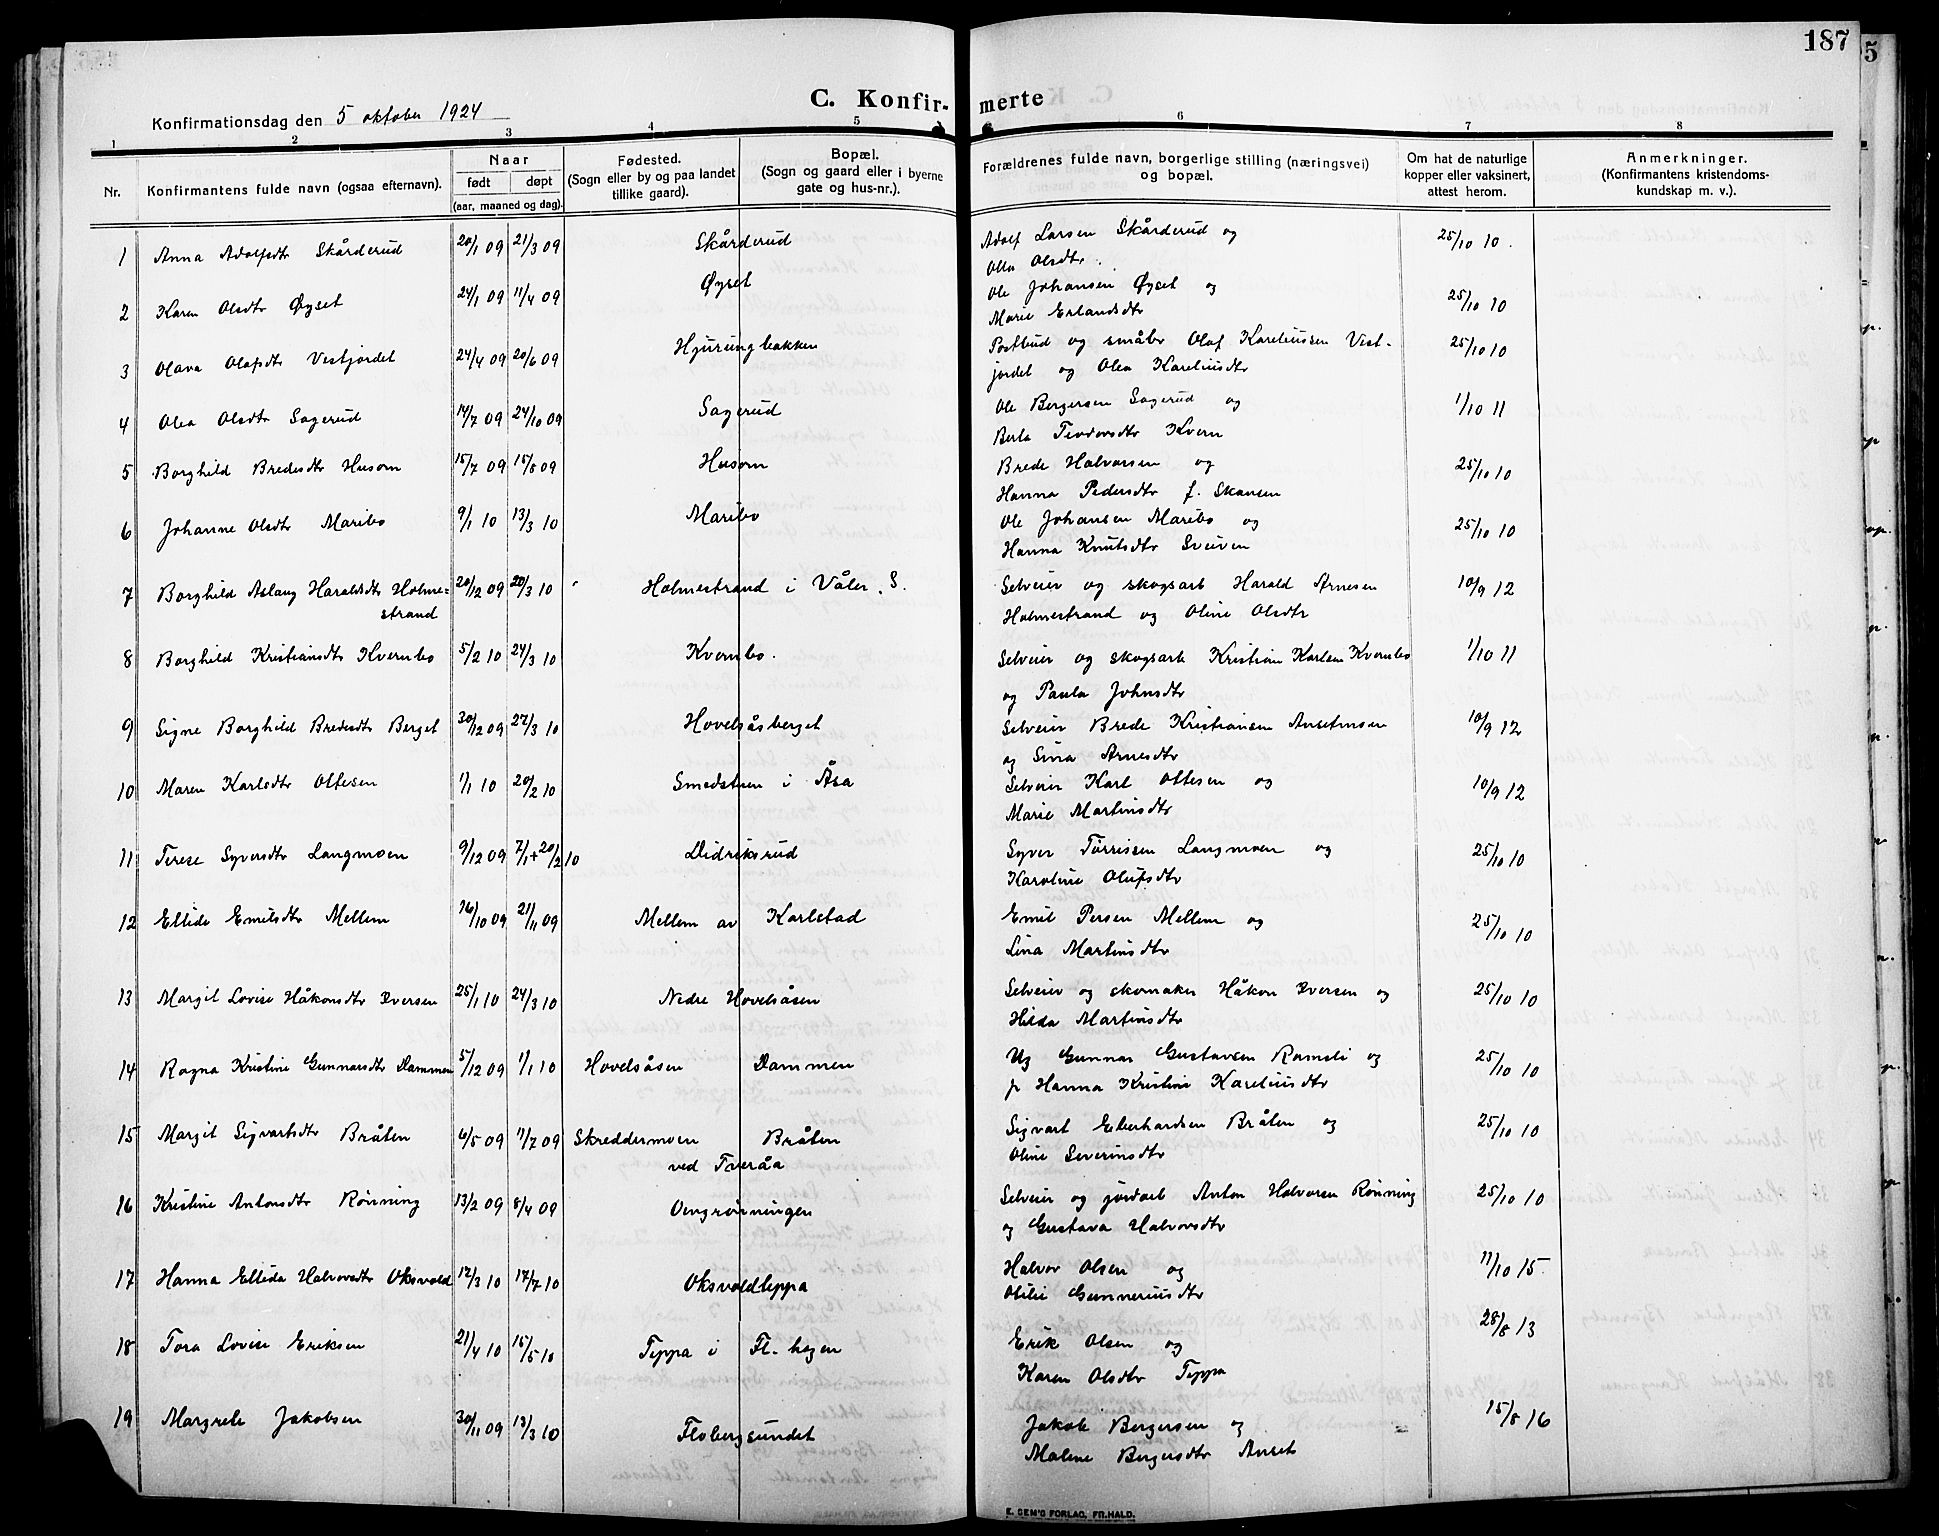 187
5
C. Konfir- merte
Konfirmationsdag den 5 oktober 1924
1 2 3 4 5 6 7 8
Nr.
Konfirmantens fulde navn (ogsaa efternavn).
Naar
født døpt
(aar, maaned og dag).
Fødested.
(Sogn eller by og paa landet
tillike gaard).
Bopæl.
(Sogn og gaard eller i byerne
gate og hus-nr.).
Forældrenes fulde navn, borgerlige stilling (næringsvei)
og bopæl.
Om hat de naturlige
kopper eller vaksinert,
attest herom.
Anmerkninger.
(Konfirmantens kristendoms-
kundskap m. v.).
1 Anna Adolfsdtr Skårderud 20/1 09 21/3 09 Skårderud Adolf Larsen Skårderud og 25/10 10.
Olea Olsdtr.
2 Karen Olsdtr Øyset 24/1 09 11/4 09 Øyset Ole Johansen Øyset og 25/10 10
Marie Erlandsdtr
3 Olava Olafsdtr Vestjordet 24/4 09 20/6 09 Hjurungbakken Postbud og småbr Olaf Kareliussen Vest- 25/10 10
jordet og Olea Kareliusdtr
4 Olea Olsdtr Sagerud 14/7 09 24/10 09 Sagerud Ole Bergersen Sagerud og 1/10 11
Berta Teodorsdtr Kvern
5 Borghild Bredesdtr Husom 15/7 09 15/8 09 Husom Brede Halvorsen og 25/10 10
Hanna Pedersdtr f. Skansen
6 Johanne Olsdtr Maribo 9/1 10 13/3 10 Maribo Ole Johansen Maribo og 25/10 10
Hanna Knutsdtr Sveiven
7 Borghild Aslaug Haraldsdtr Holme= 20/12 09 20/3 10 Holmestrand i Våler. S. Selveier og skogsarb Harald Arnesen 10/9 12
strand Holmestrand og Oline Olsdtr
8 Borghild Kristiansdtr Kvernbo 5/2 10 24/3 10 Kvernbo. Selveier og skogsarb Kristian Karlsen Kvernbo 1/10 11
og Paula Johnsdtr
9 Signe Borghild Bredesdtr Berget 30/12 09 27/3 10 Hovelsåsberget Selveier Brede Kristiansen Anselmsen 10/9 12
og Sina Arnesdtr
10 Maren Karlsdtr Ottesen 1/1 10 20/2 10 Smedstuen i Åsa Selveier Karl Ottesen og 10/9 12
Marie Martinsdtr
11 Terese Syversdtr Langmoen 9/12 09 7/1+20/2 10 Didriksrud Syver Tørrissen Langmoen og 25/10 10
Karoline Olufsdtr
12 Ellida Emilsdtr Mellem 16/10 09 21/11 09 Mellem av Karlstad Emil Persen Mellem og 25/10 10
Lina Martinsdtr
13 Margit Lovise Håkonsdtr Iversen 25/1 10 24/3 10 Nedre Hovelsåsen Selveier og skomaker Håkon Iversen og 25/10 10
Hilda Martinsdtr
14 Ragna Kristine Gunnarsdtr Dammen 5/12 09 1/1 10 Hovelsåsen Dammen Ug Gunnar Gustavsen Ramsli og 25/10 10
p Hanna Kristine Kareliusdtr
15 Margit Sigvartsdtr Bråten 6/5 09 11/7 09 Skreddermoen Bråten Sigvart Eberhardsen Bråten og 25/10 10
ved Tveråa Oline Severinsdtr
16 Kristine Antonsdtr Rønning 13/2 09 8/4 09 Ovngrønningen Selveier og jordarb Anton Halvorsen Rønning 25/10 10
og Gustava Halvorsdtr
17 Hanna Ellida Halvorsdtr Oksvold 12/3 10 17/7 10 Oksvoldteppa Halvor Olsen og 11/10 15.
Otilie Gunneriusdtr
18 Tora Lovise Eriksen 21/4 10 15/5 10 Teppa i Fl. hagen Erik Olsen og 28/8 13
Karen Olsdtr Teppa
19 Margrete Jakobsen 30/11 09 13/3 10 Flobergsundet Jakob Bergersen og 15/8 16
Malene Bergersdtr Anset
E. SEM'S FORLAG, FR.HALD.